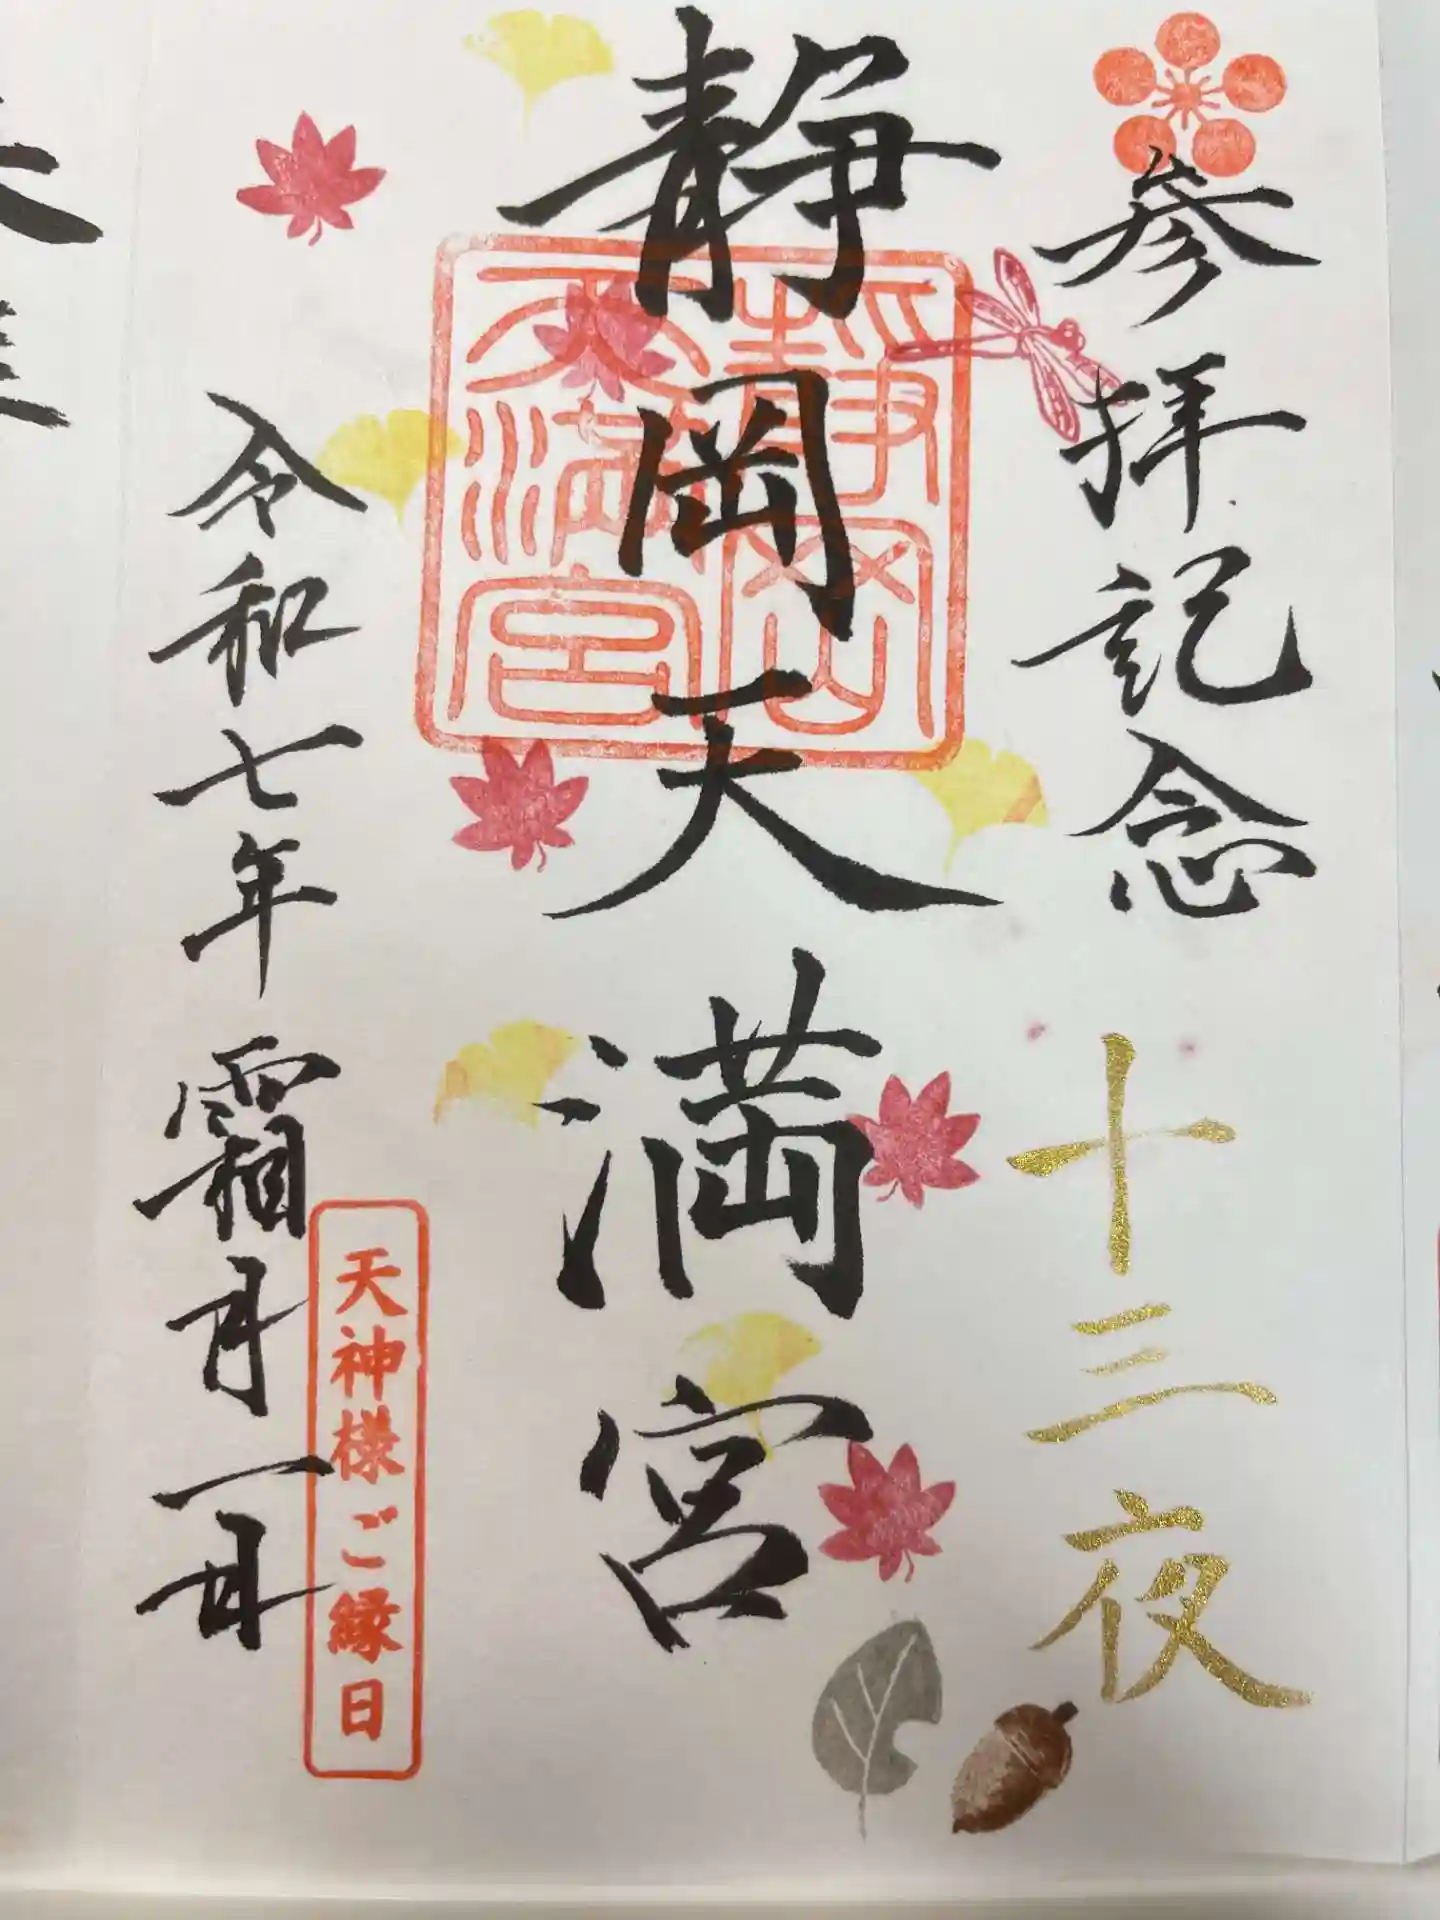 参拝記念
十三夜
静岡天満宮
静岡
天満宮
令和七年霜月一日
天神様ご縁日